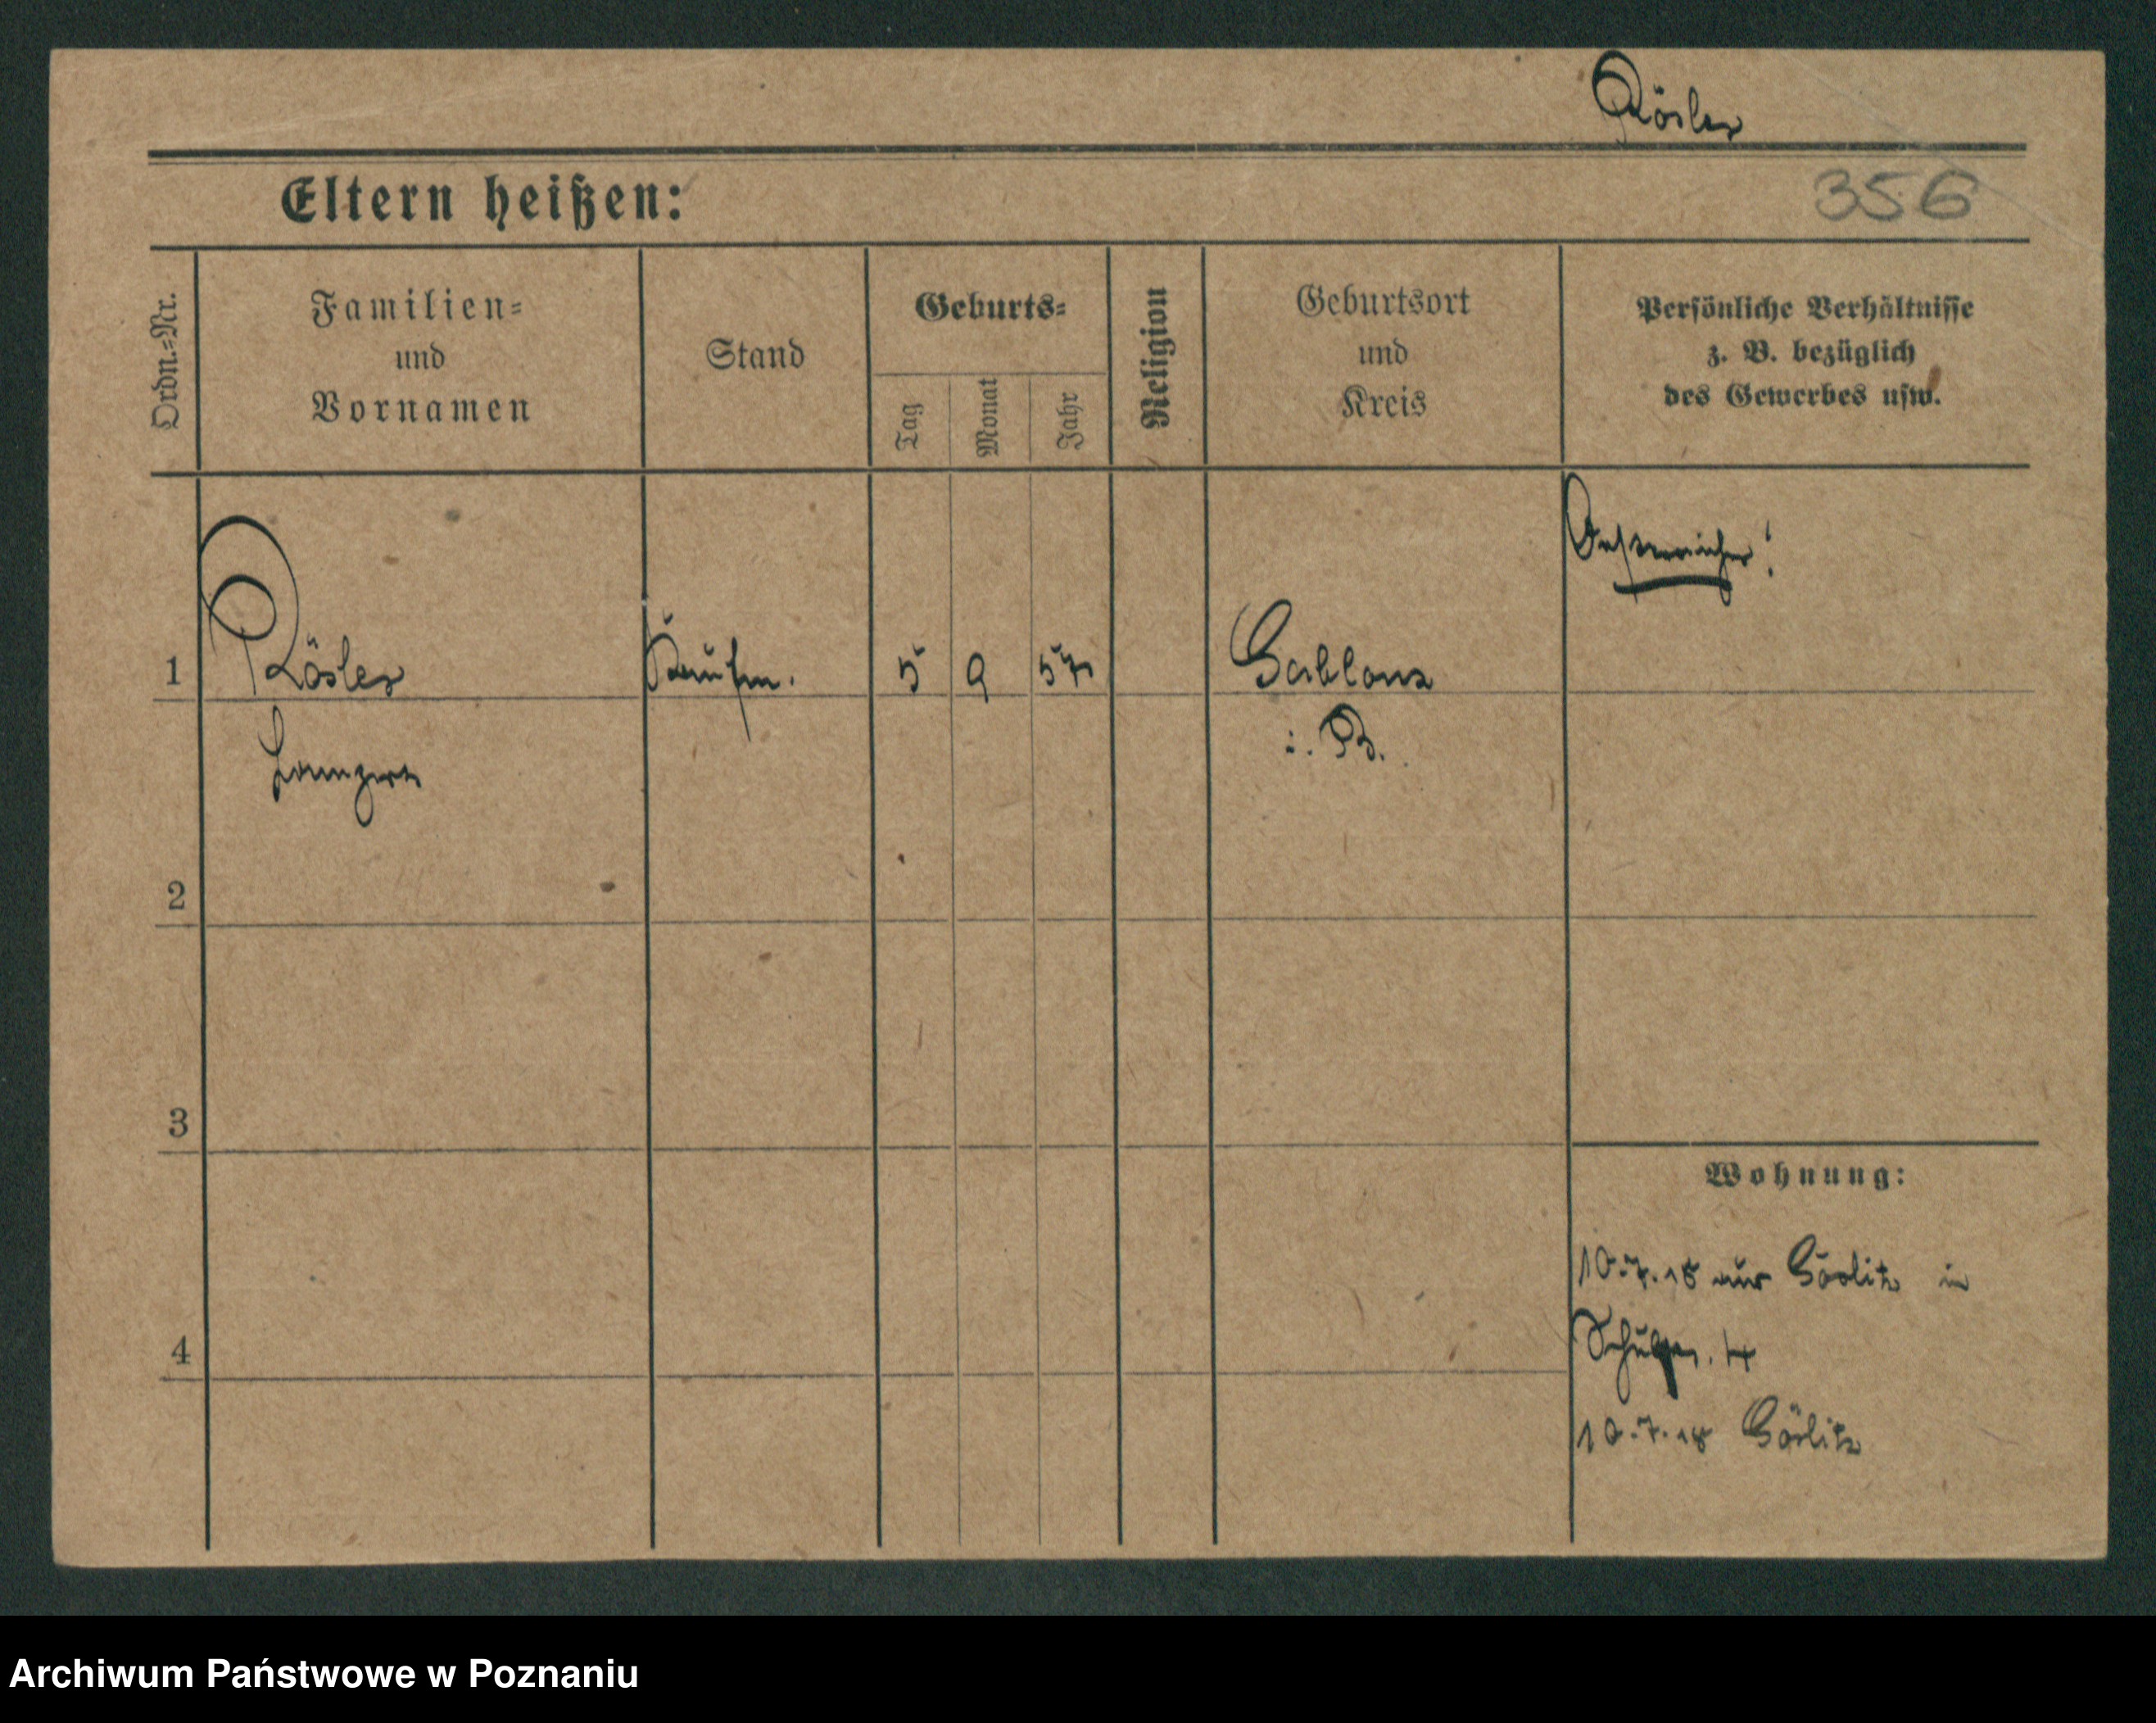 Rösler
Eltern heißen:
356
Ordn.=Nr.
Familien=
und
Vornamen
Stand
Geburts=
Tag
Monat
Jahr
Religion
Geburtsort
und
Kreis
Persönliche Verhältnisse
z. B. bezüglich
des Gewerbes usw.
Oesterreicher!
1
Rösler
Kaufm.
5
9
57
Gablonz
i. B.
2
3
4
Wohnung:
10.7.18 aus Görlitz in
4
10.7.18 Görlitz
Archiwum Państwowe w Poznaniu